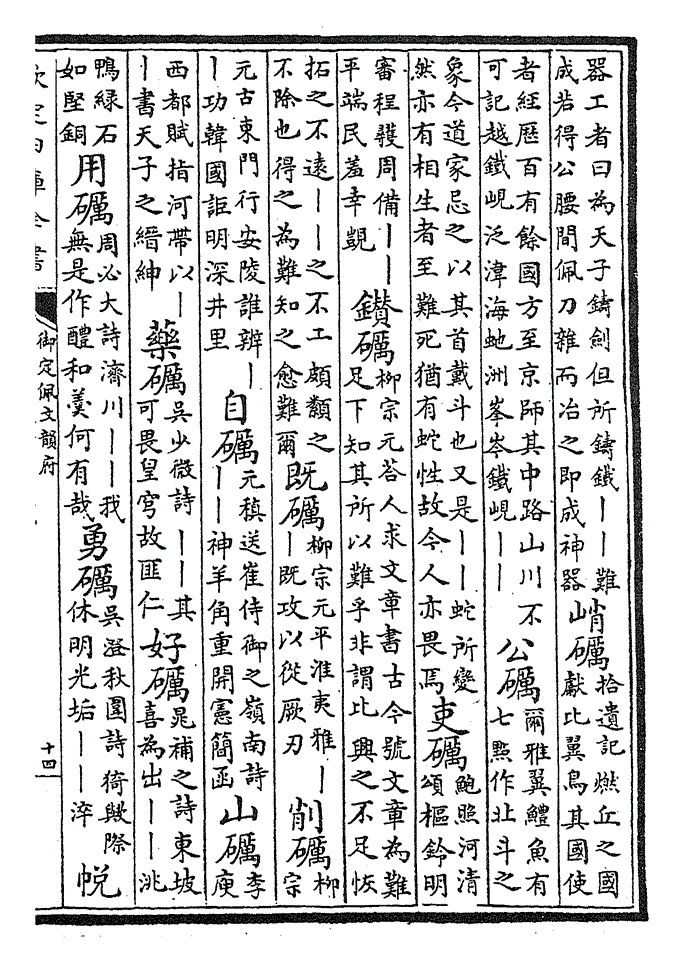 器工者曰為天子鑄劍但所鑄鐵〡〡難
成若得公腰間佩刀雜而冶之即成神器
峭礪
拾遺記燃丘之國
獻比翼鳥其國使
者經歷百有餘國方至京師其中路山川不
可記越鐵峴泛漳海虵洲峯岑鐵峴〡〡
公礪
爾雅翼鱧魚有
七㸃作北斗之
象今道家忌之以其首戴斗也又是〡〡蛇所變
然亦有相生者至難死猶有蛇性故今人亦畏焉
吏礪
鮑照河清
頌樞鈐明
審程䕶周備〡〡
平端民羞幸覬
鑚礪
栁宗元荅人求文章書古今號文章為難
足下知其所以難乎非謂比興之不足恢
拓之不逺〡〡之不工頗纇之
不除也得之為難知之愈難爾
既礪
栁宗元平淮夷雅〡
〡既攻以從厥刃
削礪
栁
宗
元古東門行安陵誰辨〡
〡功韓國詎明深井里
自礪
元稹送崔侍御之嶺南詩
〡〡神羊角重開憲簡函
山礪
李
庾
西都賦指河帶以〡
〡書天子之縉紳
藥礪
吳少微詩〡〡其
可畏皇穹故匪仁
好礪
晁補之詩東坡
喜為出〡〡洮
鴨緑石
如堅銅
用礪
周必大詩濟川〡〡我
無是作醴和羹何有哉
勇礪
吳澄秋圍詩猗歟際
休明光垢〡〡淬
帨
欽定四庫全書
御定佩文韻府
十四